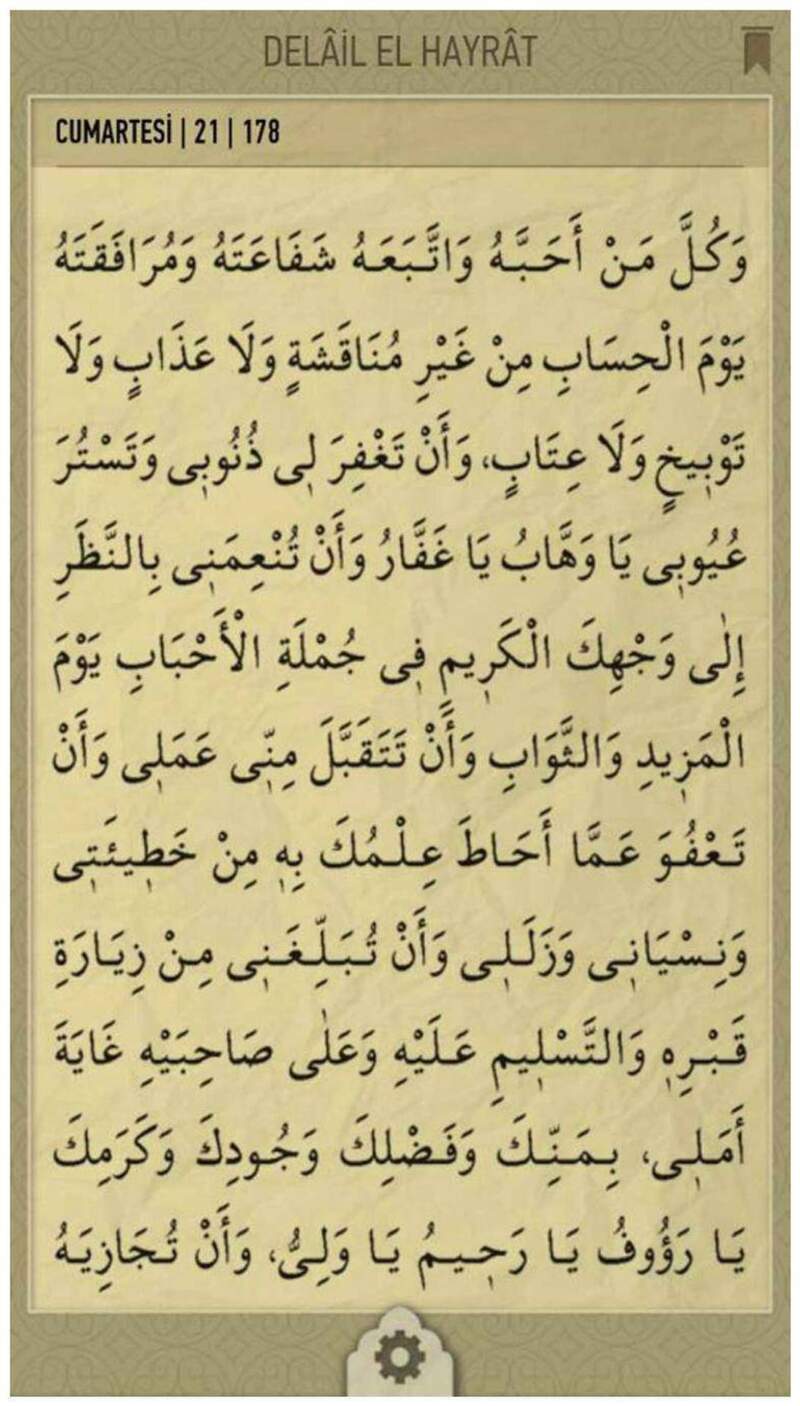 DELÂİL EL HAYRÂT
CUMARTESİ | 21 | 178
وَكُلَّ مَنْ أَحَبَّهُ وَاتَّبَعَهُ شَفَاعَتَهُ وَمُرَافَقَتَهُ
يَوْمَ الْحِسَابِ مِنْ غَيْرِ مُنَاقَشَةٍ وَلَا عَذَابٍ وَلَا
تَوْبٖيخٍ وَلَا عِتَابٍ، وَأَنْ تَغْفِرَ لٖى ذُنُوبٖى وَتَسْتُرَ
عُيُوبٖى يَا وَهَّابُ يَا غَفَّارُ وَأَنْ تُنْعِمَنٖى بِالنَّظَرِ
إِلٰى وَجْهِكَ الْكَرٖيمِ فٖى جُمْلَةِ الْأَحْبَابِ يَوْمَ
الْمَزٖيدِ وَالثَّوَابِ وَأَنْ تَتَقَبَّلَ مِنّٖى عَمَلٖى وَأَنْ
تَعْفُوَ عَمَّا أَحَاطَ عِلْمُكَ بِهٖ مِنْ خَطٖيئَتٖى
وَنِسْيَانٖى وَزَلَلٖى وَأَنْ تُبَلِّغَنٖى مِنْ زِيَارَةِ
قَبْرِهٖ وَالتَّسْلٖيمِ عَلَيْهِ وَعَلٰى صَاحِبَيْهِ غَايَةَ
أَمَلٖى، بِمَنِّكَ وَفَضْلِكَ وَجُودِكَ وَكَرَمِكَ
يَا رَؤُوفُ يَا رَحٖيمُ يَا وَلِىُّ، وَأَنْ تُجَازِيَهُ